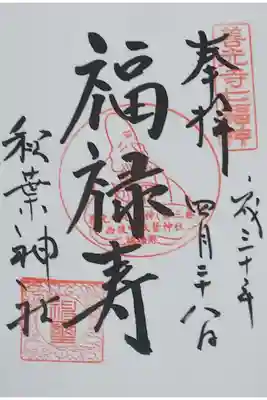 善光寺七福神
奉拝
成三十年
四月二十八日
福禄寿
秋葉神社